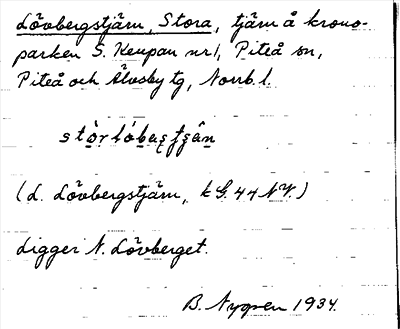 Lövbergstjärn, Stora, tjärn å krono-
parken S. Keupan nr 1, Piteå sn,
Piteå och Älvsby tg, Norrb. l.
(L. Lövbergstjärn, k G. 44 NV.)
Ligger N. Lövberget.
B. Nygren 1934.